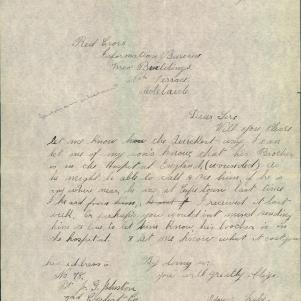 Red Cross
Information Bureau
New Buildings
Nth Terrace
Adelaide
Dear Sirs
Will you Please
let me know how the Quickest way I can
let one of my son's know that his Brother
is in the Hospital England (wounded) as
he might be able to call & see him, if he is
any where near, he was at last time
I heard from him, I received it last
week, Or perhaps you would not mind sending
him to let him know his brother is in
the hospital. & let me know what it costs
his address is By doing so
No 78. you will greatly oblige
Pt J. G. Johnston
Yours Truly